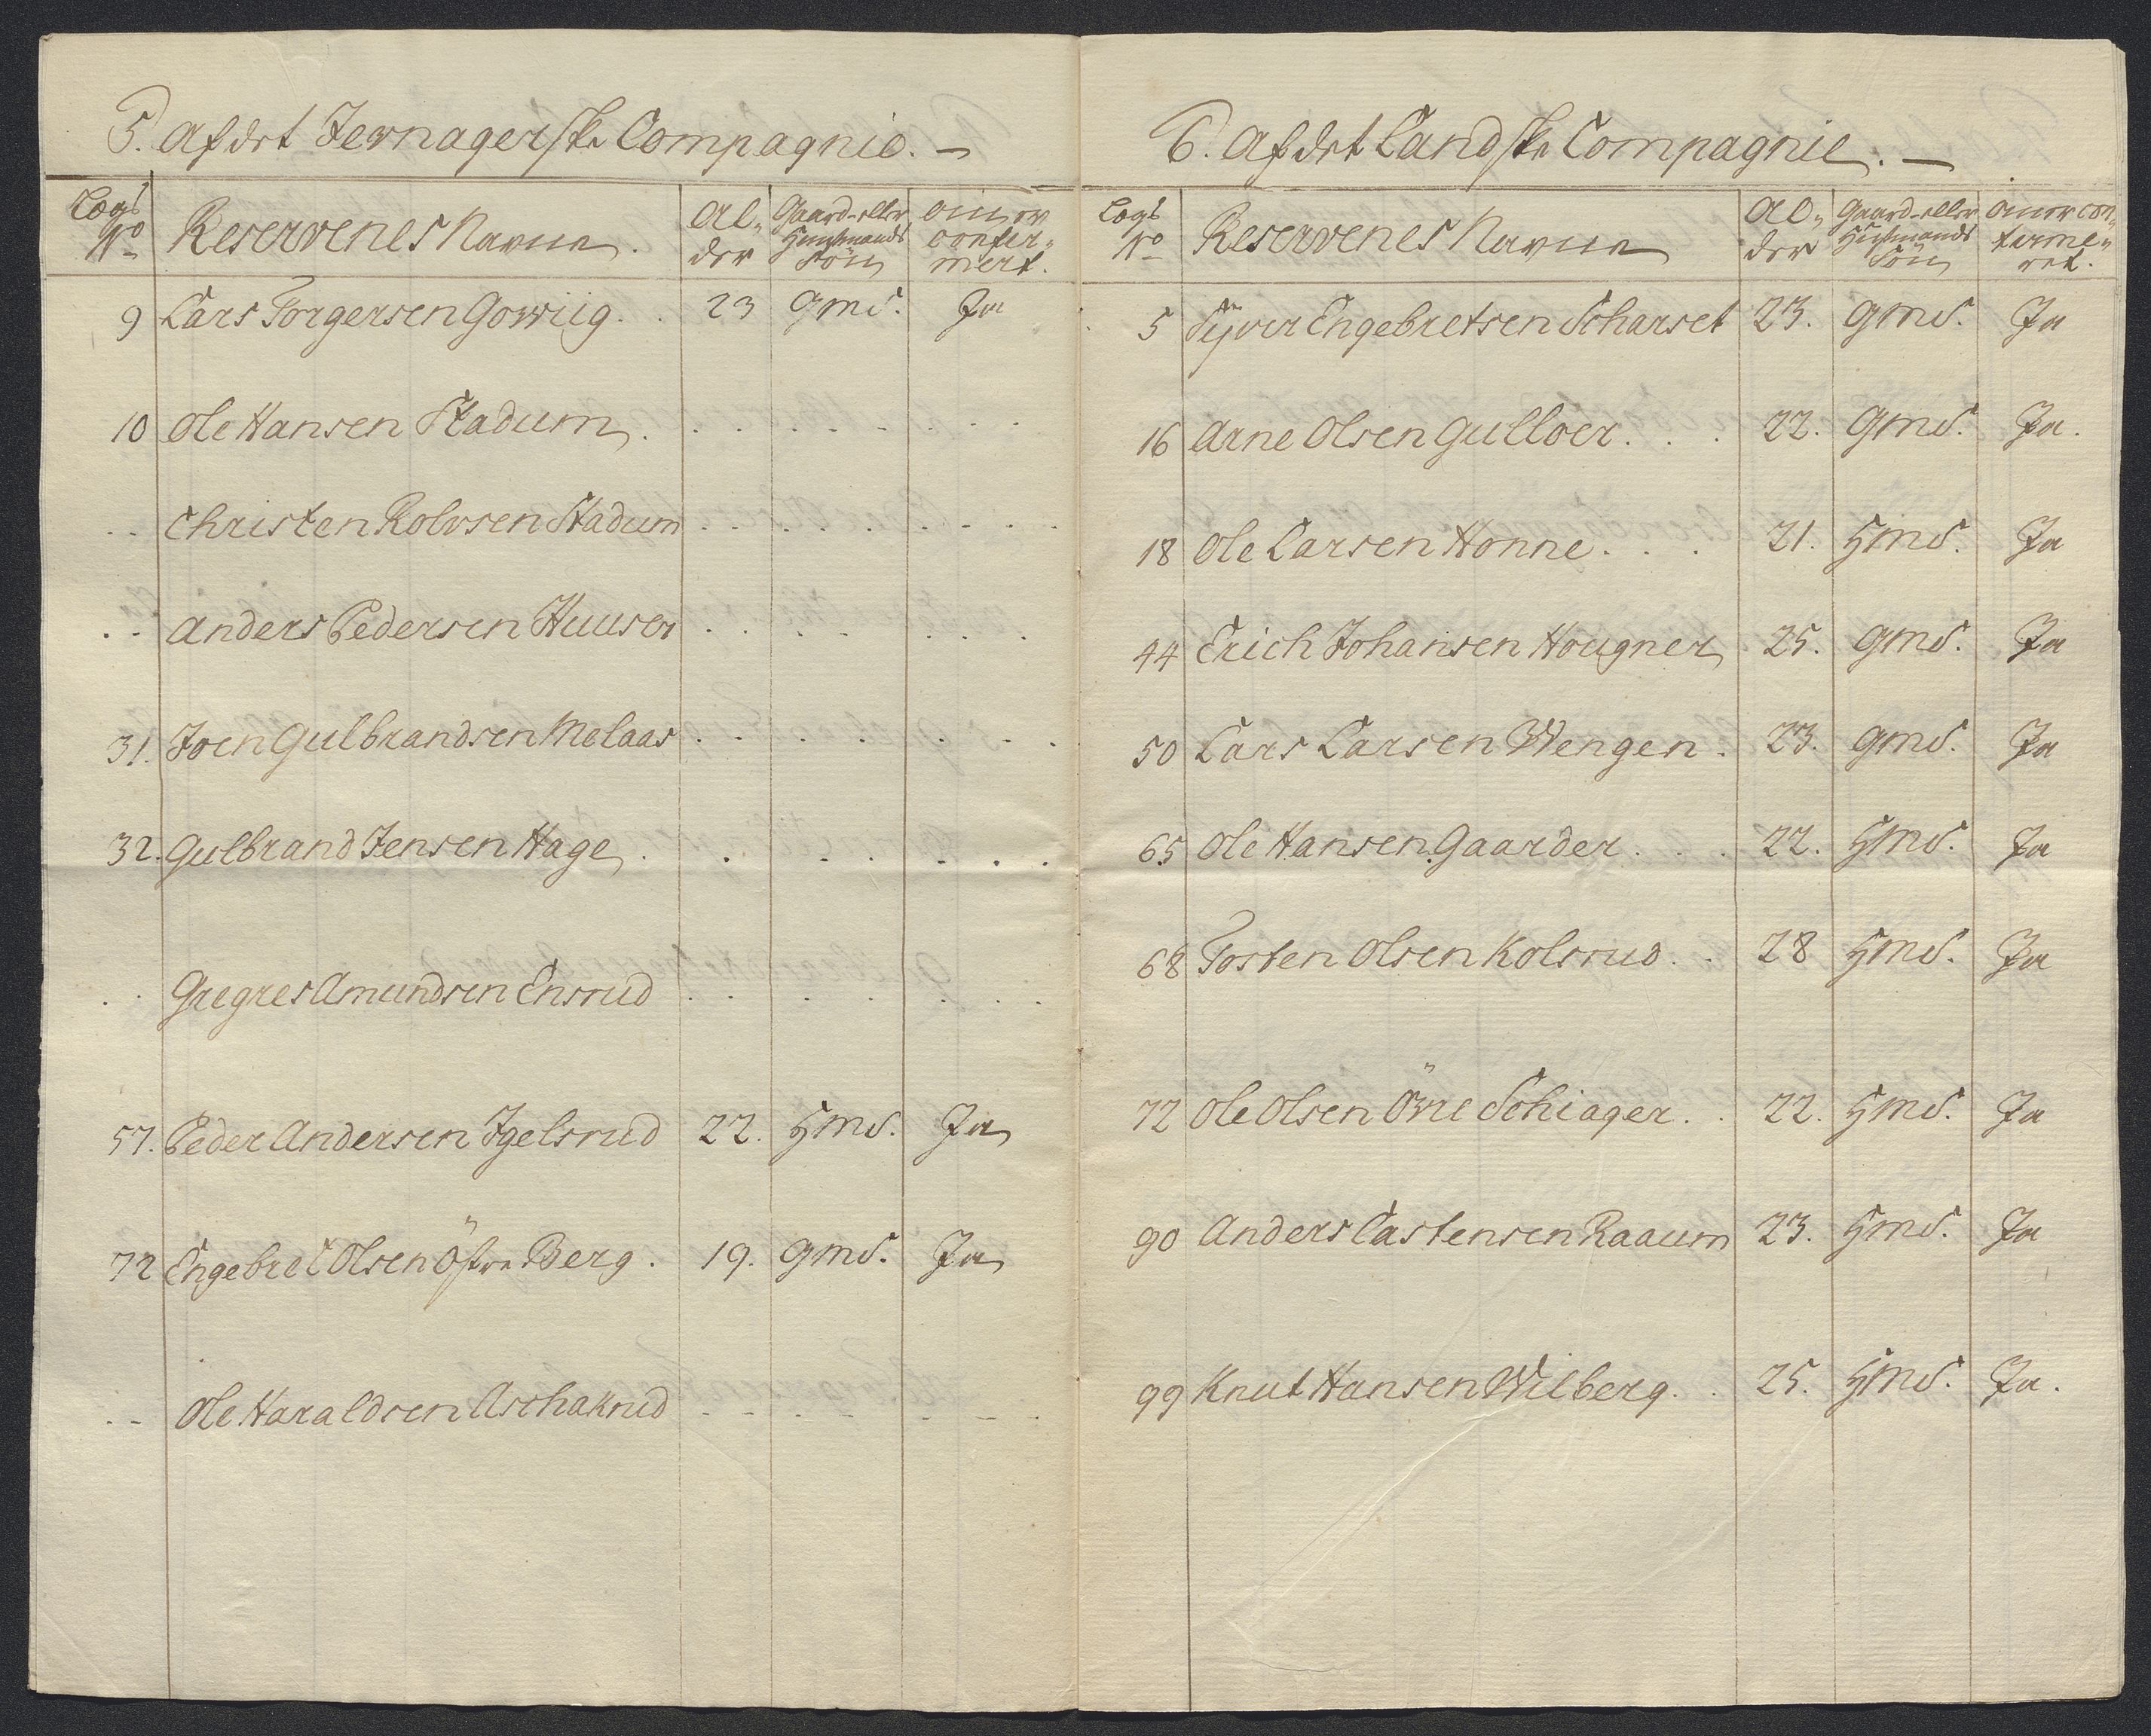 5. Af det Jevnagerske Compagnie. –
Logs No | Reservenes Navne. | Al- der | Gaard- eller Huusmands Søn | Om er confir- mert.
9 Lars Torgersen Gorviig . . 23 Gmd. Ja
10 Ole Hansen Stadum . . . . . . . . .
. . Christen Rolvsen Stadum . . . . . . . .
. . Anders Pedersen Huuser . . . . . . .
31. Joen Gulbrandsen Melaas . . . . . . . .
32. Gulbrand Jensen Hage . . . . . . . .
. . Gregres Amundsen Ensrud . . . . . . . .
57. Peder Andersen Igelsrud 22. Hmd. Ja
72 Engebret Olsen Östre Berg . 19. Gmd. Ja
. . Ole Haraldsen Aschakrud - - - - - - -
6. Af det Landske Compagnie. –
Logs No | Reservenes Navne | Al- der | Gaard- eller Huusmands Søn | Om er con- firme- ret.
5 Syver Engebretsen Scharset 23. Gmd. Ja
16 Arne Olsen Gulloer . . . 22. Gmd. Ja.
18 Ole Larsen Honne . . . 21. Hmd. Ja
44 Erich Johansen Hougner 25. Gmd. Ja
50 Lars Larsen Wengen . 23. Gmd. Ja
65 Ole Hansen Gaarder . . . 22. Hmd. Ja
68 Tosten Olsen Kolsrud . . 28 Hmd. Ja
72 Ole Olsen Övre Schiager . . 22. Hmd. Ja
90 Anders Castensen Raaum 23. Hmd. Ja
99 Knut Hansen Wilberg . . 25. Hmd. Ja.